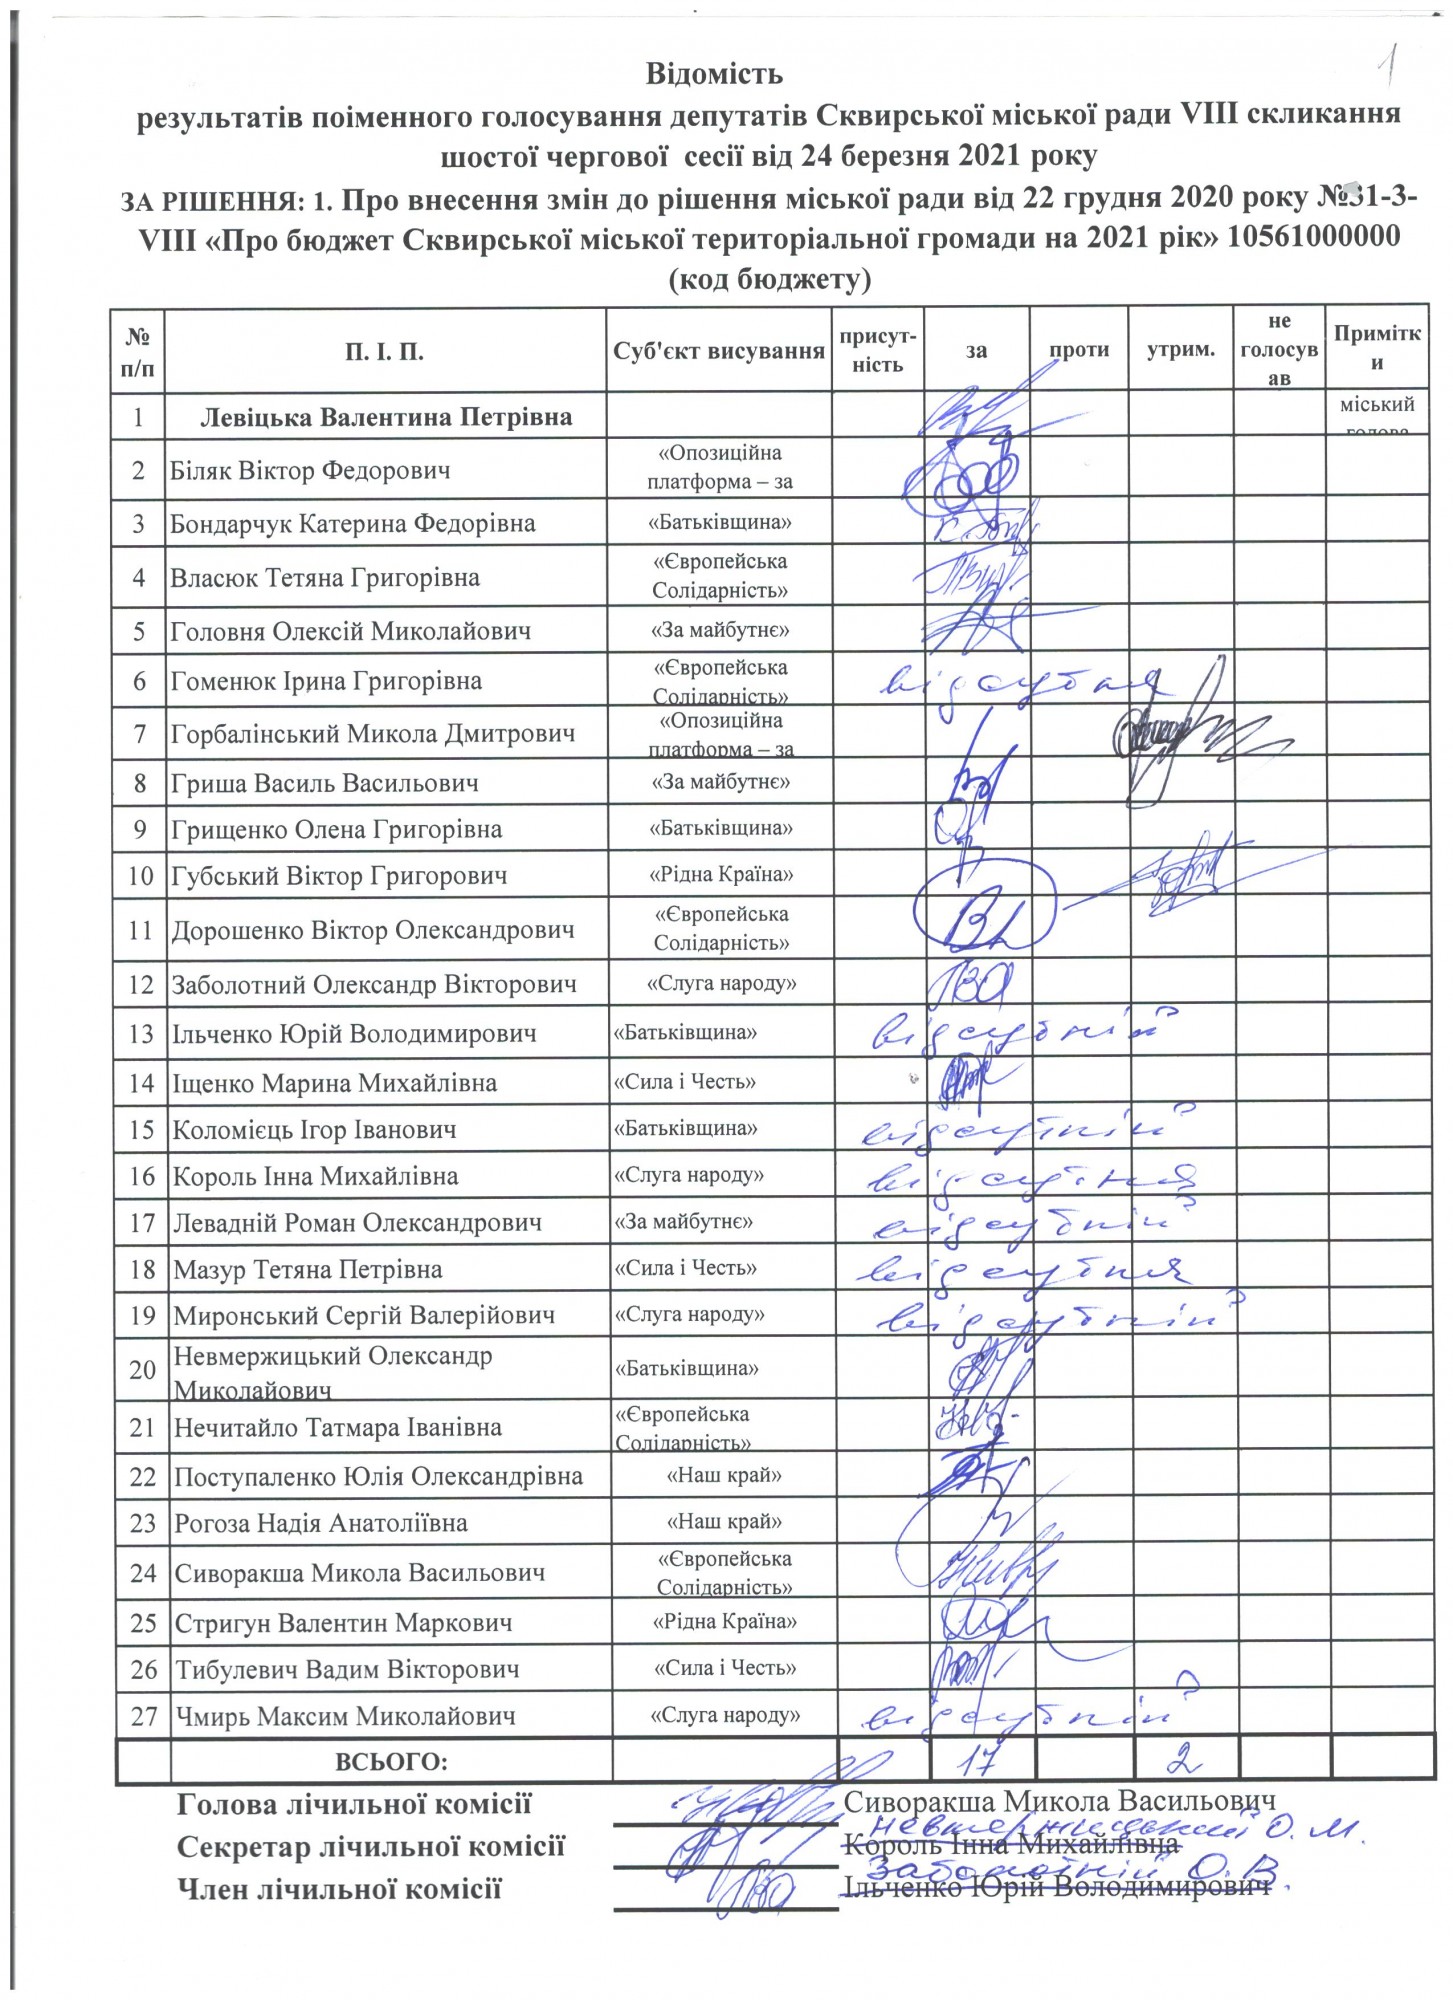 1
Відомість
результатів поіменного голосування депутатів Сквирської міської ради VIII скликання
шостої чергової сесії від 24 березня 2021 року
ЗА РІШЕННЯ: 1. Про внесення змін до рішення міської ради від 22 грудня 2020 року №31-3-
VIII «Про бюджет Сквирської міської територіальної громади на 2021 рік» 10561000000
(код бюджету)
№ п/п П. І. П. Суб'єкт висування присут-ність за проти утрим. не голосував Примітки
1 Левіцька Валентина Петрівна міський голова
2 Біляк Віктор Федорович «Опозиційна платформа – за
3 Бондарчук Катерина Федорівна «Батьківщина»
4 Власюк Тетяна Григорівна «Європейська Солідарність»
5 Головня Олексій Миколайович «За майбутнє»
6 Гоменюк Ірина Григорівна «Європейська Солідарність» відсутня
7 Горбалінський Микола Дмитрович «Опозиційна платформа – за
8 Гриша Василь Васильович «За майбутнє»
9 Грищенко Олена Григорівна «Батьківщина»
10 Губський Віктор Григорович «Рідна Країна»
11 Дорошенко Віктор Олександрович «Європейська Солідарність»
12 Заболотний Олександр Вікторович «Слуга народу»
13 Ільченко Юрій Володимирович «Батьківщина» відсутній
14 Іщенко Марина Михайлівна «Сила і Честь»
15 Коломієць Ігор Іванович «Батьківщина» відсутній
16 Король Інна Михайлівна «Слуга народу» відсутня
17 Левадній Роман Олександрович «За майбутнє» відсутній
18 Мазур Тетяна Петрівна «Сила і Честь» відсутня
19 Миронський Сергій Валерійович «Слуга народу» відсутній
20 Невмержицький Олександр Миколайович «Батьківщина»
21 Нечитайло Татмара Іванівна «Європейська Солідарність»
22 Поступаленко Юлія Олександрівна «Наш край»
23 Рогоза Надія Анатоліївна «Наш край»
24 Сиворакша Микола Васильович «Європейська Солідарність»
25 Стригун Валентин Маркович «Рідна Країна»
26 Тибулевич Вадим Вікторович «Сила і Честь»
27 Чмирь Максим Миколайович «Слуга народу» відсутній
ВСЬОГО: 17 2
Голова лічильної комісії Сиворакша Микола Васильович
Невмержицький О. М.
Секретар лічильної комісії Король Інна Михайлівна
Заболотній О. В.
Член лічильної комісії Ільченко Юрій Володимирович